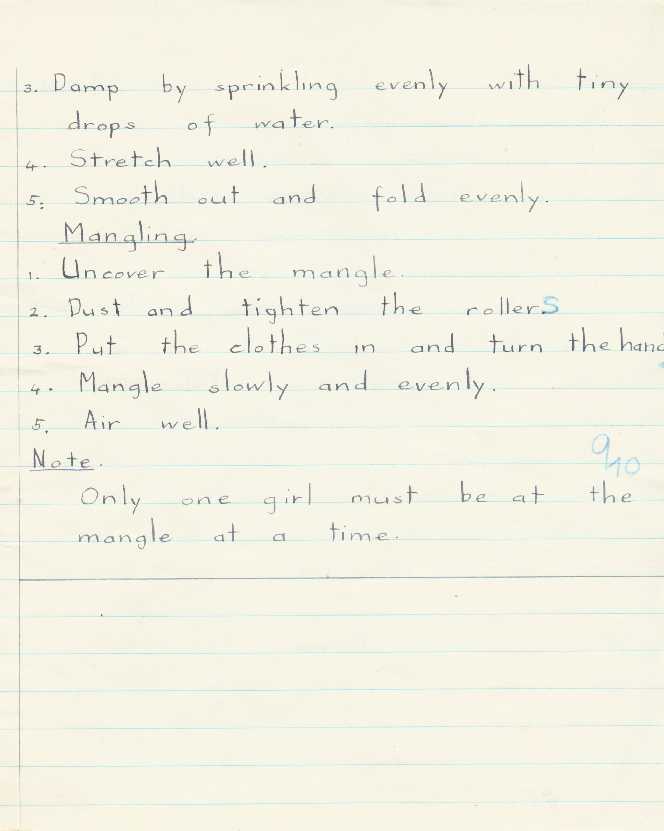 3. Damp by sprinkling evenly with tiny
drops of water.
4. Stretch well.
5. Smooth out and fold evenly.
Mangling
1. Uncover the mangle.
2. Dust and tighten the rollerS
3. Put the clothes in and turn the hand
4. Mangle slowly and evenly.
5. Air well.
Note.
9/10
Only one girl must be at the
mangle at a time.